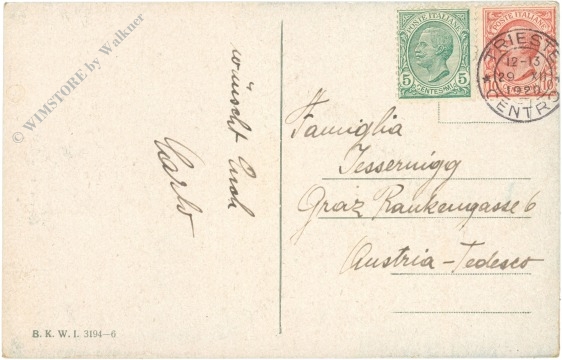 © WIMSTORE by Walkner
wünscht Euch
Carlo
POSTE ITALIANE
5 CENTESIMI 5
POSTE ITALIANE
TRIESTE
12-13
29 XII
1920
CENTRO
Famiglia
Tessernigg
Graz Rankengasse 6
Austria-Tedesco
B. K. W. I. 3194—6